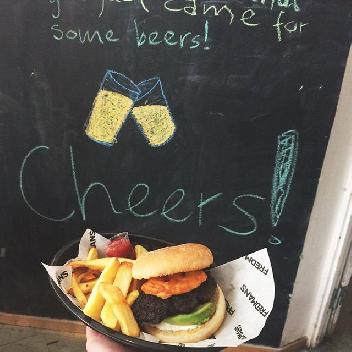 just came for
some beers!
Cheers!
FREDMANS
FREDMANS